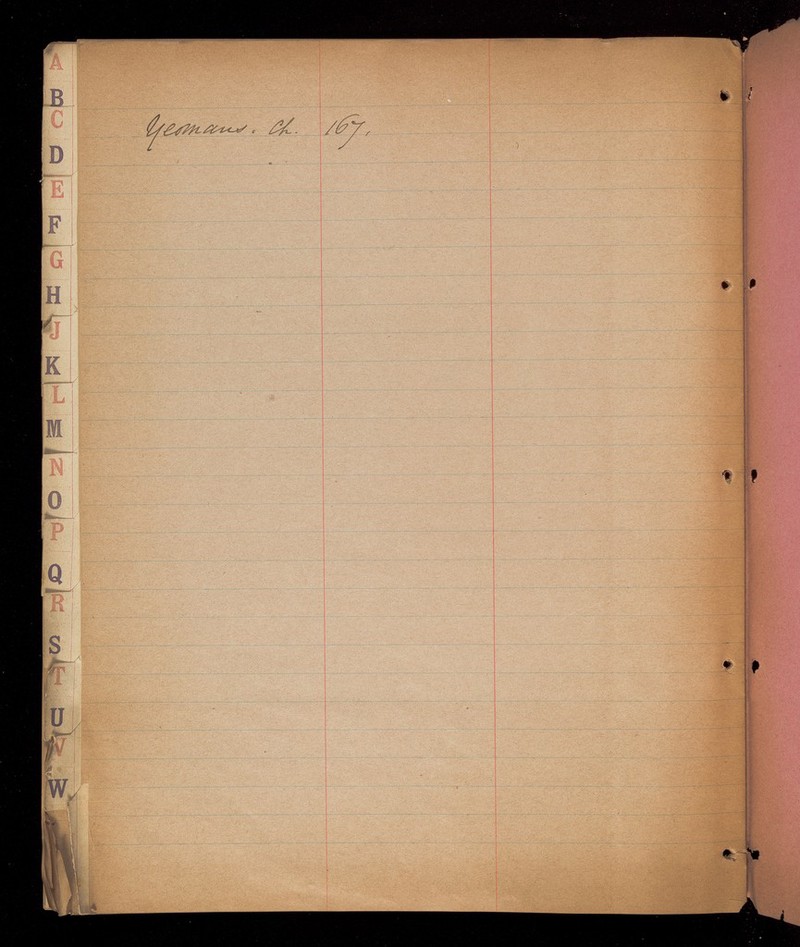 A
B
C
D
E
F
G
H
J
K
L
M
N
O
P
Q
R
S
T
U
V
W
Yeomans. Ch. 167.